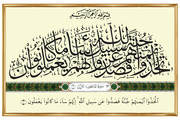 بسم الله الرحمن الرحيم
اتخذوا أيمانهم جنة فصدوا عن سبيل الله إنهم ساء ما كانوا يعملون
اتَّخَذُوا أَيْمَانَهُمْ جُنَّةً فَصَدُّوا عَن سَبِيلِ اللَّهِ إِنَّهُمْ سَاءَ مَا كَانُوا يَعْمَلُونَ